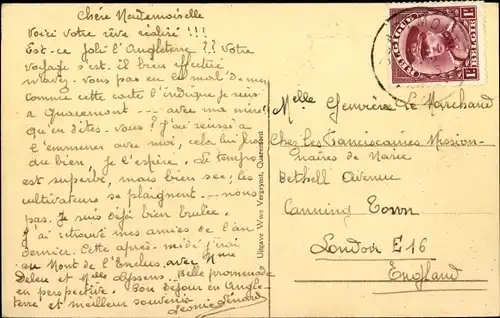 Chère Mademoiselle
Voici votre rêve réalisé !!!
Est-ce joli l'Angleterre ?? Votre
voyage s'est-il bien effectué
n'avez-vous pas eu le mal de mer
comme cette carte l'indique je suis
à Quaremont --- avec ma mère
qu'en dites-vous? J'ai réussi à
l'emmener avec moi, cela lui fera
du bien, je l'espère. Le temps
est superbe, mais bien sec; les
cultivateurs se plaignent --- nous
pas. Je suis déjà bien brulée.
J'ai retrouvé mes amies de l'an
dernier. Cette après-midi j'irai
au Mont de l'Enclus, avec Mme
Deleu et Melle. Belle promenade
en perspective. Bon séjour en Angle-
terre et meilleur souvenir
Léonie Lénard
Uitgave Wwe Vergeynst, Quaremont
BELGIQUE BELGIË
1F 1F
Melle Geneviève Le Marchand
Chez les Franciscaines Mission-
naires de Marie
Bethell Avenue
Canning Town
London E16
England